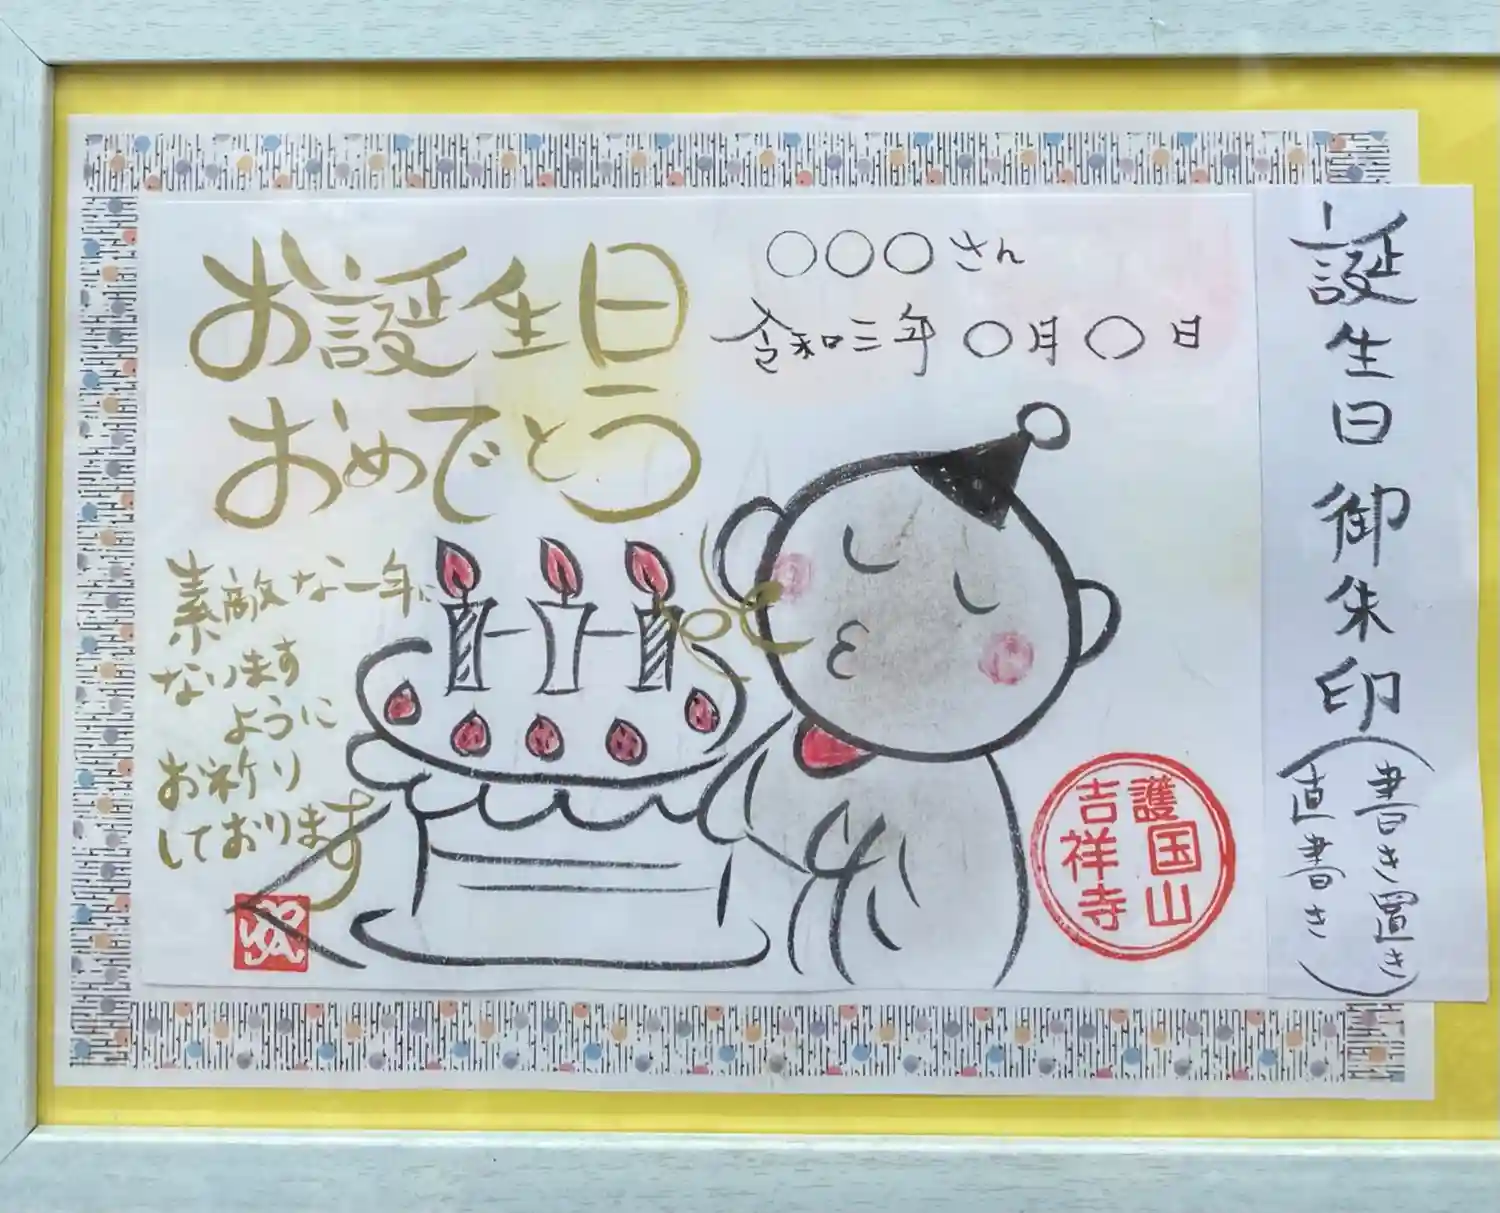 お誕生日
おめでとう
○○○さん
令和三年 ○月○日
素敵な一年に
なります
ように
お祈り
しております
護国山
吉祥寺
誕生日 御朱印
(書き置き
直書き)